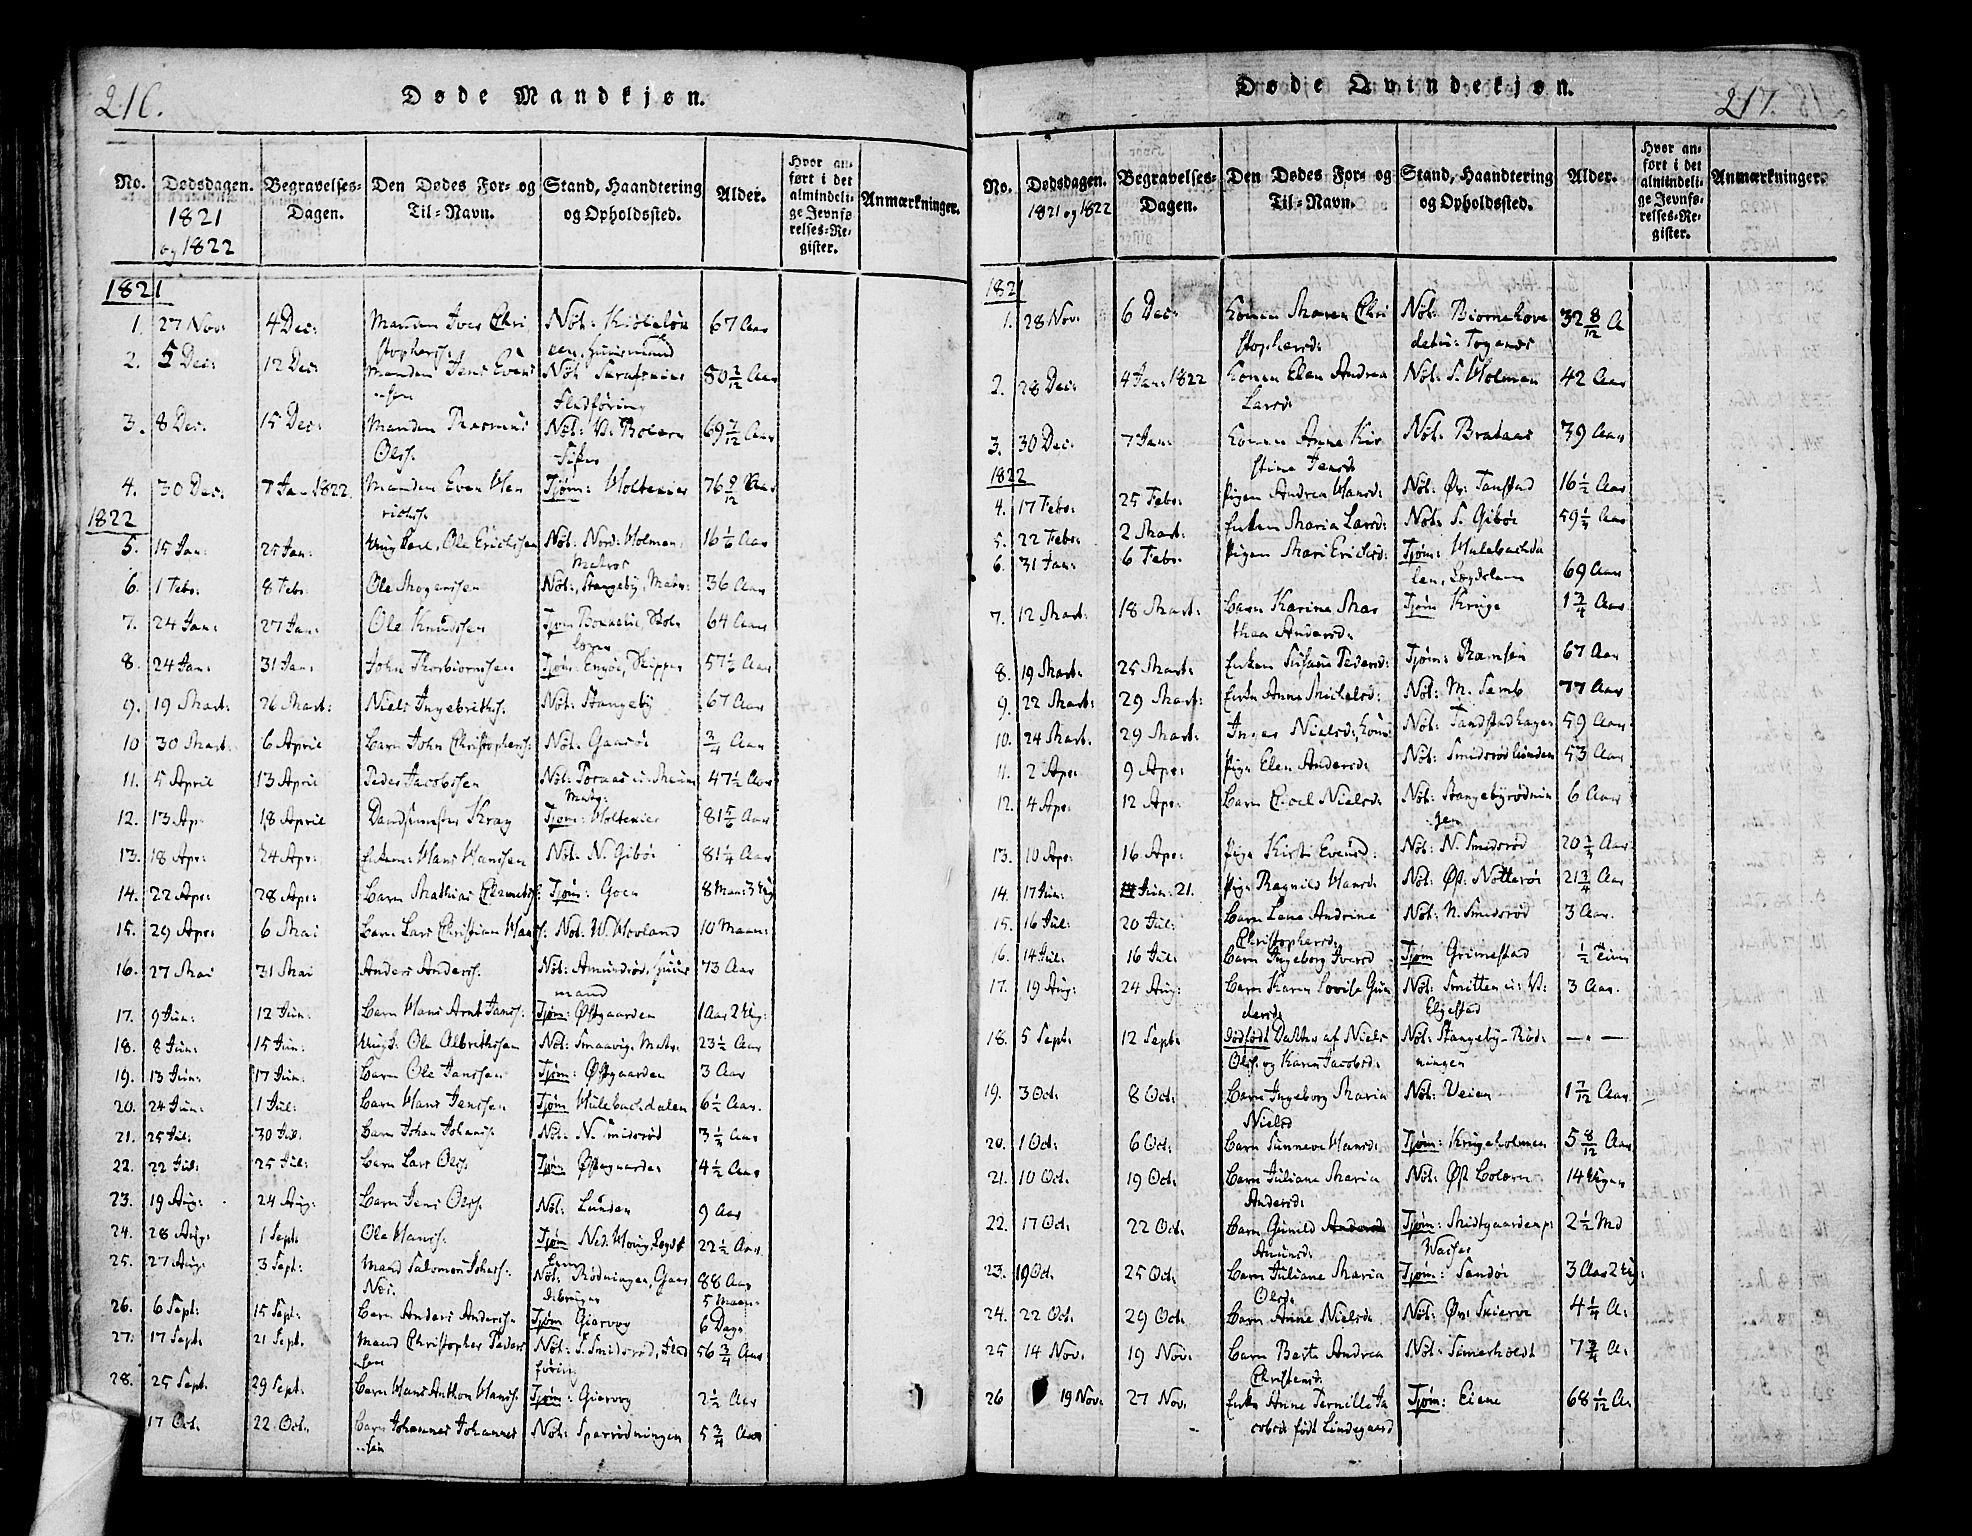 216.
Døde Mandkjøn.
No. Dødsdagen. 1821 og 1822 Begravelses-Dagen. Den Dødes For- og Til-Navn. Stand, Haandtering og Opholdssted. Alder. Hvor anført i det almindelige Jevnførelses-Register. Anmærkninger.
1821
1. 27 Nov: 4 Dec: Manden Iver Chri
stophers: Nöt: 67 Aar
2. 5 Dec: 12 Dec: Manden Jens Evens
sen Nöt: 80 2/12 Aar
3. 8 Dec: 15 Dec: Manden Rasmus
Olss. Nöt: V. Bolærn 69 7/12 Aar
4. 30 Dec: 7 Jan 1822. Manden Even Hen
richss. Tjøm: Holtekier 76 9/12 Aar
1822
5. 15 Jan: 25 Jan: Ung Karl, Ole Erichssen Nöt: Nord: Holmen,
Matros 16 1/6 Aar
6. 1 Febr: 8 Febr. Ole Mogenssen Nöt:, Stangeby, Matr: 36 Aar
7. 24 Jan: 27 Jan: Ole Knudssen Tjøm 64 Aar
8. 24 Jan: 31 Jan: John Thorbiørnssen Tjøm: Engöe, Skipper 57 1/2 Aar
9. 19 Mart: 26 Mart: Niels Ingebrethss. Nöt: Stangeby 67 Aar
10 30 Mart: 6 April Barn John Christopherss: Nöt: Gaasöe 3/4 Aar
11. 5 April 13 April Peder Jacobssen Nöt: 47 1/2 Aar
12. 13 Ap: 18 April Krag Tjøm: Holtekier 81 5/6 Aar
13. 18 Apr: 24 Apr: Hans Hanssen Nöt: N. Gibøe 81 1/4 Aar
14. 22 Apr: 28 Apr: Barn Mathias Clemetss: Tjøm: Goen 8 Maan: 3 Ug
15. 29 Apr: 6 Mai Barn Lars Christian Hanss: Nöt: W. Hovland 10 Maan:
16. 27 Mai 31 Mai Anders Anderss. Nöt: Amundrød, Huus
mand 73 Aar
17. 9 Jun: 12 Jun: Barn Hans Arnt Janss: Tjøm: Østgaarden 1 Aar 2 Ug:
18. 8 Jun: 15 Jun: Ungk. Ole Albrethssen Nöt: Smaavig, Matr: 23 1/2 Aar
19. 13 Jun: 17 Jun: Barn Ole Janssen Tjøm: Østgaarden 3 Aar
20. 24 Jun: 1 Jul: Barn Hans Jenssen Tjøm Hulebachdalen 6 1/2 Aar.
21. 25 Jul: 30 Jul. Barn Johan Johanss. Nöt: N. Smidsrød 3 1/3 Aar
22. 22 Jul: 25 Jul: Barn Lars Olss. Tjøm Østegaarden 4 1/2 Aar
23. 19 Aug: 24 Aug: Barn Jens Olss. Nöt: Lunden 9 Aar
24. 28 Aug: 1 Sept. Ole Hanss. Tjøm Ned: Houg, Lægds
lem 22 1/2 Aar
25. 27 Aug: 3 Sept: Mand Salomon Johss:
Nöt: Rødningen, Gaar
dbruger 88 Aar
5 Maan:
26. 6 Sept: 15 Sept: Barn Anders Anderssen Tjøm Giervog 6 Dage
27. 17 Sept. 21 Sept. Mand Christopher Peders
sen Nöt: S. Smidsrød, 56 3/4 Aar
28. 25 Sept. 29 Sept. Barn Hans Anthon Hanss. Tjøm: Giervog 2 1/2 Aar
17 Oct. 22. Oct. Barn Johannes Johannes
sen Nöt: Sparrødningen 5 3/4 Aar
217.
Døde Qvindekjøn.
No. Dødsdagen. 1821 og 1822 Begravelses-Dagen. Den Dødes For- og Til-Navn. Stand, Haandtering og Opholdssted. Alder. Hvor anført i det almindelige Jevnførelses-Register. Anmærkninger.
1821
1. 28 Nov: 6 Dec: Konen Maren Chri
stophersd: Nöt: Biørnehove
det 32 8/12 A
2. 28 Dec: 4 Jan: 1822 Konen Elen Andrea
Larsd: Nöt: S. Holmen 42 Aar
3. 30 Dec: 7 Jan: Konen Anne Kir
stine Jensd: Nöt: Brataas 39 Aar
1822
4. 17 Febr: 25 Febr: Pigen Andrea Hansd: Nöt: Øv: Tanstad 16 1/2 Aar
5. 22 Febr: 2 Mart: Enken Maria Larsd: Nöt: S. Gibøe 59 1/4 Aar
6. 31 Jan: 6 Febr: Pigen Mari Ericksd: Tjøm: Hulebachda
len, Lægdslem 69 Aar
7. 12 Mart: 18 Mart: Barn Karine Mar
thea Andersd: Tjøm Kruge 1 3/4 Aar
8. 19 Mart: 25 Mart: Enken Susane Pedersd: Tjøm: Ramsøe 67 Aar
9. 22 Mart: 29 Mart: Enke Anne Michelsd: Nöt: M. Semb 77 Aar
10. 24 Mart: 29 Mart: Inger Nielsd:, Kone Nöt: Tandstadhagen 59 Aar
11. 2 Apr: 9 Apr: Pige Elen Andersd: Nöt: Smidsrødlunden 53 Aar
12. 4 Apr: 12 Apr: Barn Nielsd: Nöt: Stangebyrødnin
gen 6 Aar
13. 10 Apr: 16 Apr: Pige Kirsti Evensd: Nöt: N. Smidsrød 20 1/3 Aar
14. 17 Jun: Jun: 21. Pige Ragnild Hansd: Nöt: Øst: Nötterøe 21 3/4 Aar
15. 16 Jul: 20 Jul: Barn Lene Andrine
Christophersd: Nöt: N. Smidsrød 3 Aar.
16. 14 Jul: 16 Jul: Barn Ingeborg Iversd Tjøm Grimestad 1/2 Time
17. 19 Aug: 24 Aug: Barn Karen Lovise Gun
dersd: Nöt: Smitten u: V:
Elgestad 3 Aar.
18. 5 Sept: 12 Sept: Dødfödt Datter af Niels
Olss: og Karen Jacobsd: Nöt: Stangeby-Rød
ningen — " —
19. 3 Oct: 8 Oct: Barn Ingeborg Maria
Nielsd Nöt: Veien 1 7/12 Aar.
20. 1 Oct: 6 Oct: Barn Sunneve Hansd: Tjøm: Krugeholmen 5 8/12 Aar
21. 10 Oct. 19 Oct: Barn Juliane Maria
Andersd: Nöt: Øst Bolærn 14 Uger
22. 17 Oct. 22 Oct: Barn Gunild
Amunsd: Tjøm: Midtgaarden p:
Wasser 2 1/2 Md
23. 19 Oct. 25 Oct: Barn Juliane Maria
Olsd: Tjøm: Sandøe 3 Aar 2 Ug:
24. 22 Oct: 29 Oct: Barn Anne Nielsd: Nöt: Øv: Skierve 4 1/4 A:
25 14 Nov. 19 Nov: Barn Berte Andrea
Christensd: Nöt: Semerholdt 7 3/4 A:
26 19 Nov: 27 Nov: Enke Anne Pernille Ja
cobsd født Lindegaard Tjøm: Eiene 68 1/12 A: